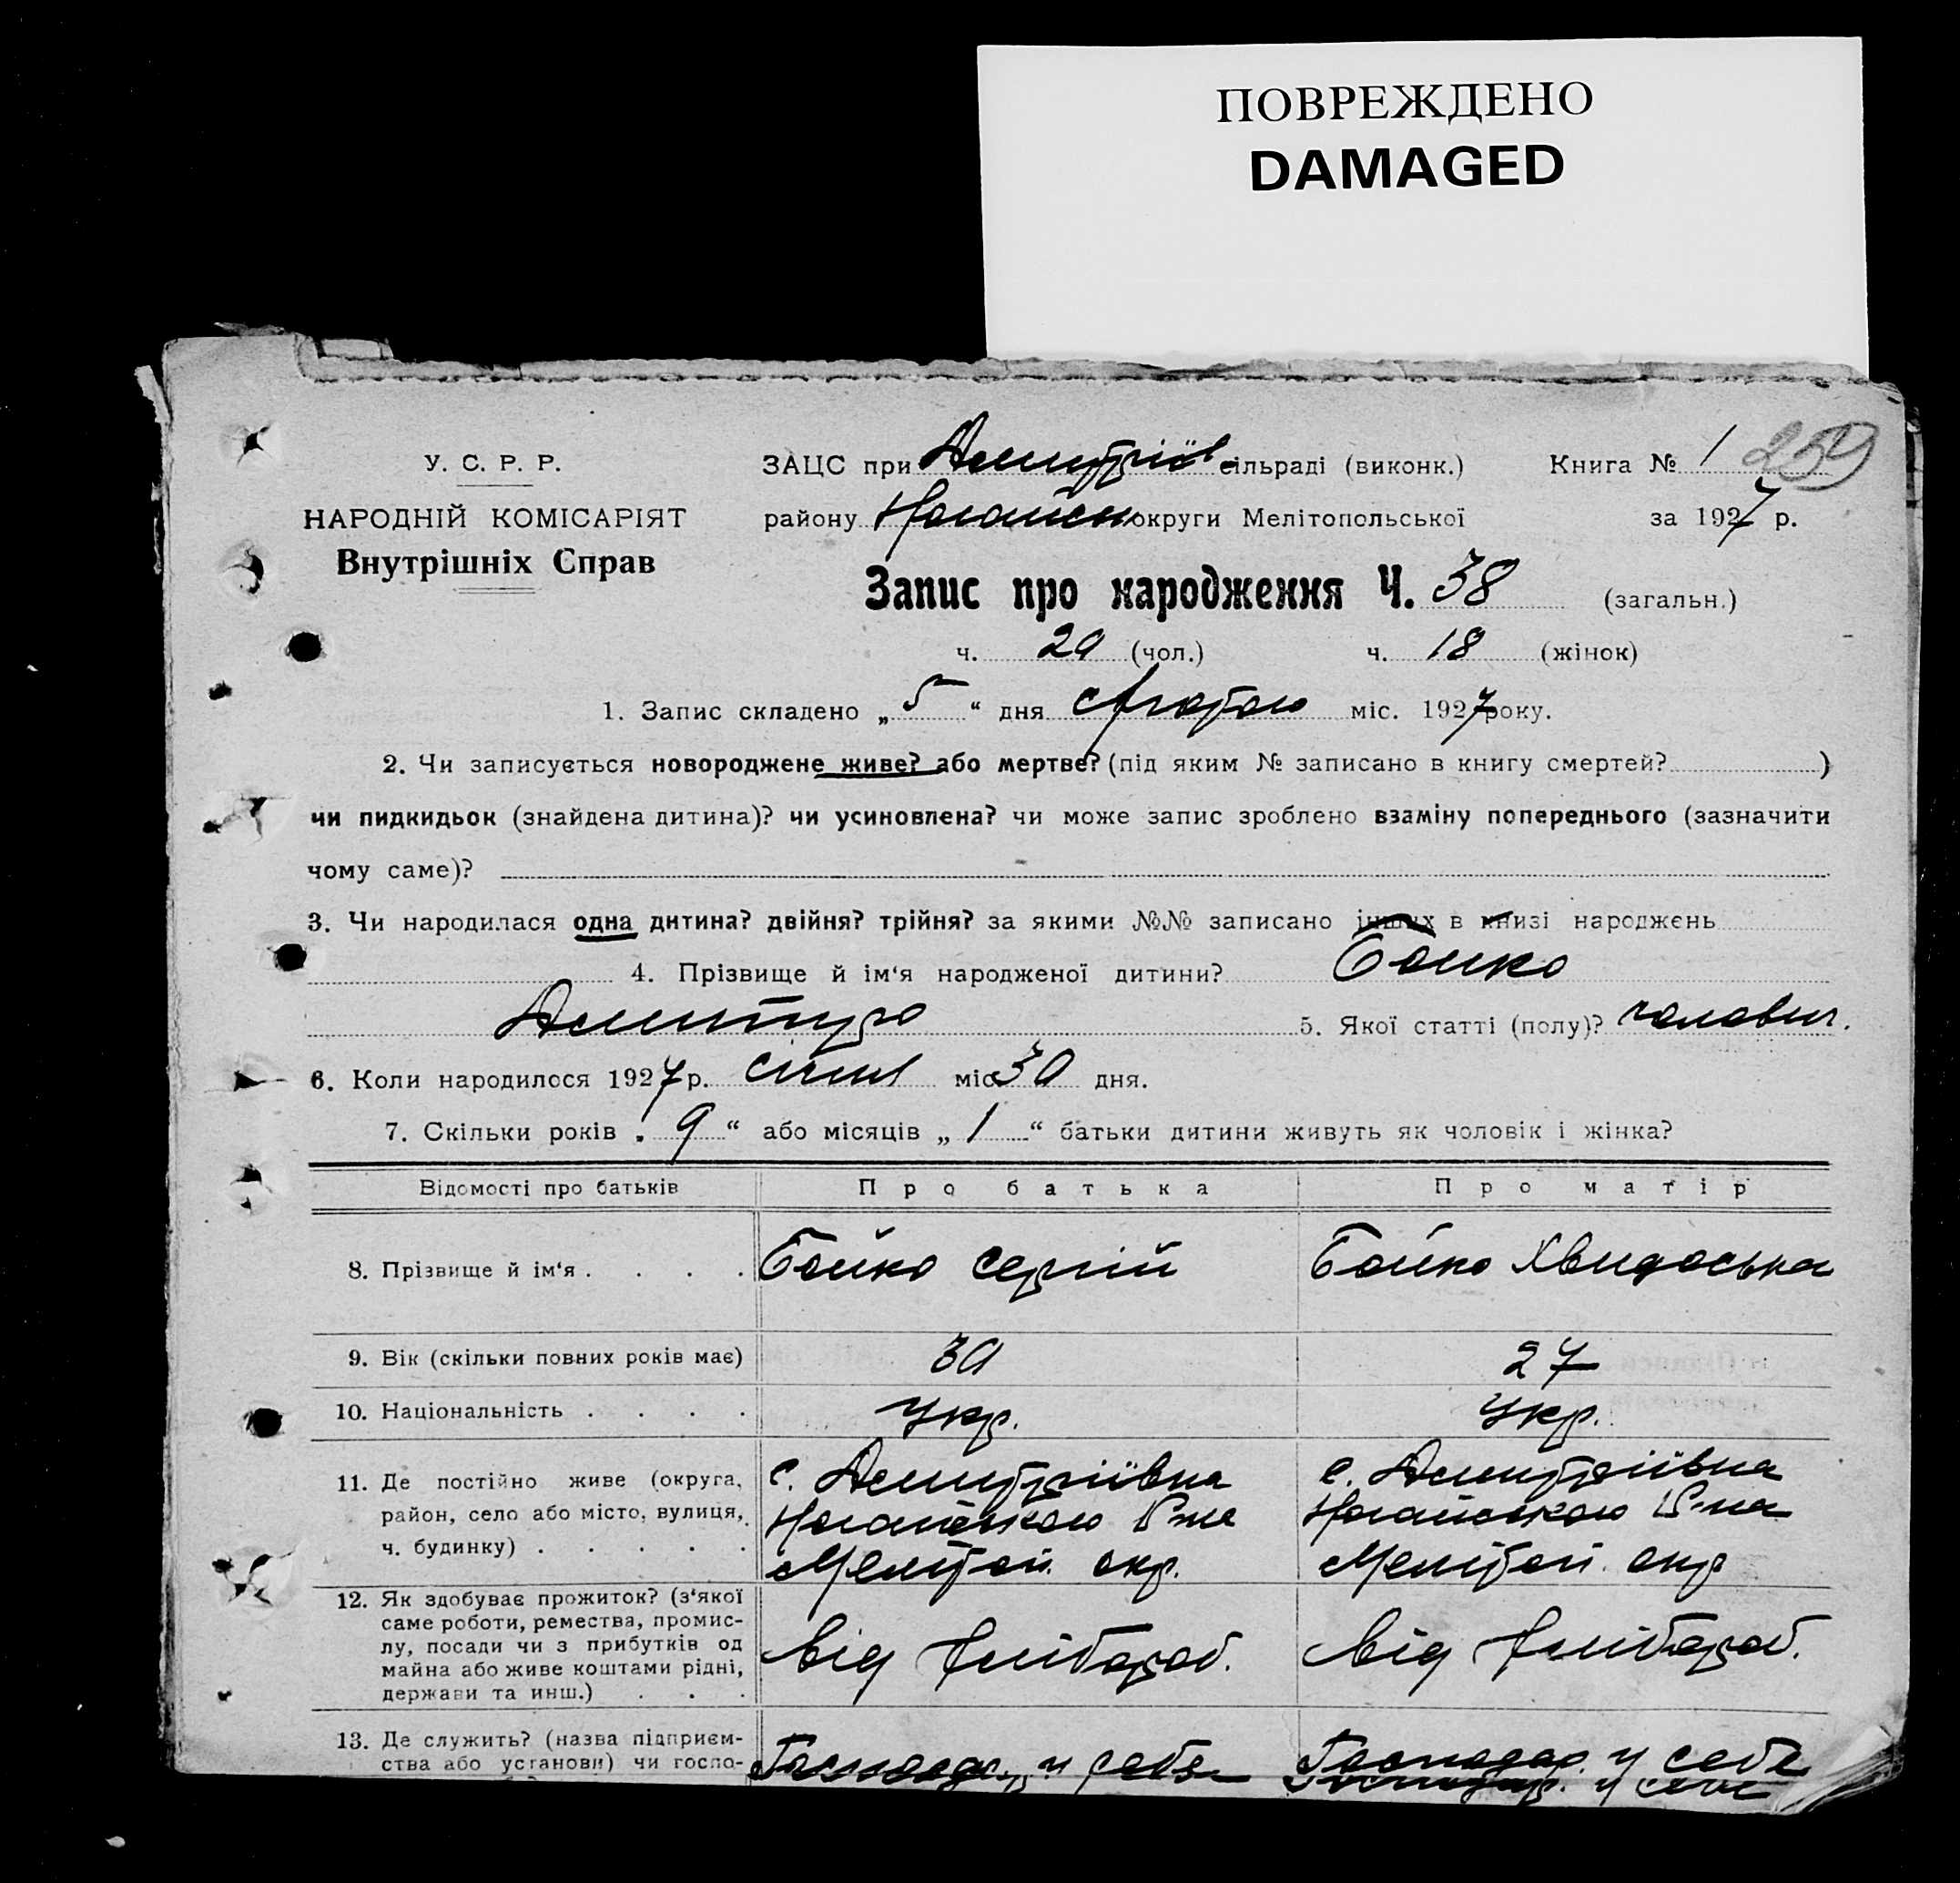 ПОВРЕЖДЕНО
DAMAGED
259
У. С. Р. Р.
НАРОДНІЙ КОМІСАРІЯТ
Внутрішніх Справ
ЗАЦС при Дмитріїв сільраді (виконк.) Книга № 1
району Ногайськ округи Мелітопольської за 1927 р.
Запис про народження Ч. 38 (загальн.)
ч. 20 (чол.) ч. 18 (жінок)
1. Запис складено „5“ дня Лютого міс. 1927 року.
2. Чи записується новороджене живе? або мертве? (під яким № записано в книгу смертей? )
чи пидкидьок (знайдена дитина)? чи усиновлена? чи може запис зроблено взаміну попереднього (зазначити
чому саме)?
3. Чи народилася одна дитина? двійня? трійня? за якими №№ записано інших в книзі народжень
4. Прізвище й ім‘я народженої дитини? Бойко
Дмитро 5. Якої статті (полу)? чоловіч.
6. Коли народилося 1927 р. січня міс 30 дня.
7. Скільки років „9“ або місяців „1“ батьки дитини живуть як чоловік і жінка?
Відомості про батьків Про батька Про матір
8. Прізвище й ім‘я . . . . Бойко Сергій Бойко Хвидоська
9. Вік (скільки повних років має) 30 27
10. Національність . . . . Укр. Укр.
11. Де постійно живе (округа, с. Дмитріївка с. Дмитріївка
район, село або місто, вулиця, Ногайського Р-на Ногайського Р-на
ч. будинку) . . . . . Мелітоп. окр. Мелітоп. окр
12. Як здобуває прожиток? (з‘якої
саме роботи, ремества, промис-
лу, посади чи з прибутків од від хлібороб. від хлібороб.
майна або живе коштами рідні,
держави та инш.) . . .
13. Де служить? (назва підприєм-
ства або установи) чи госпо- Господар. у себе Господар. у себе